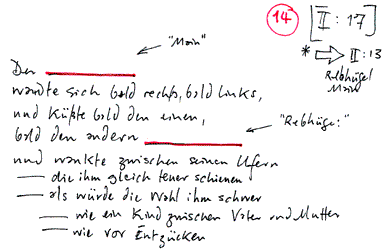 14 [II : 17]
"Main" * ⇨ II : 13
Rebhügel
Main
Der
wandte sich bald rechts, bald links,
und küßte bald den einen,
bald den andern
"Rebhügel"
und wankte zwischen seinen Ufern
— die ihm gleich teuer schienen
— als würde die Wahl ihm schwer
— wie ein Kind zwischen Vater und Mutter
— wie vor Entzücken